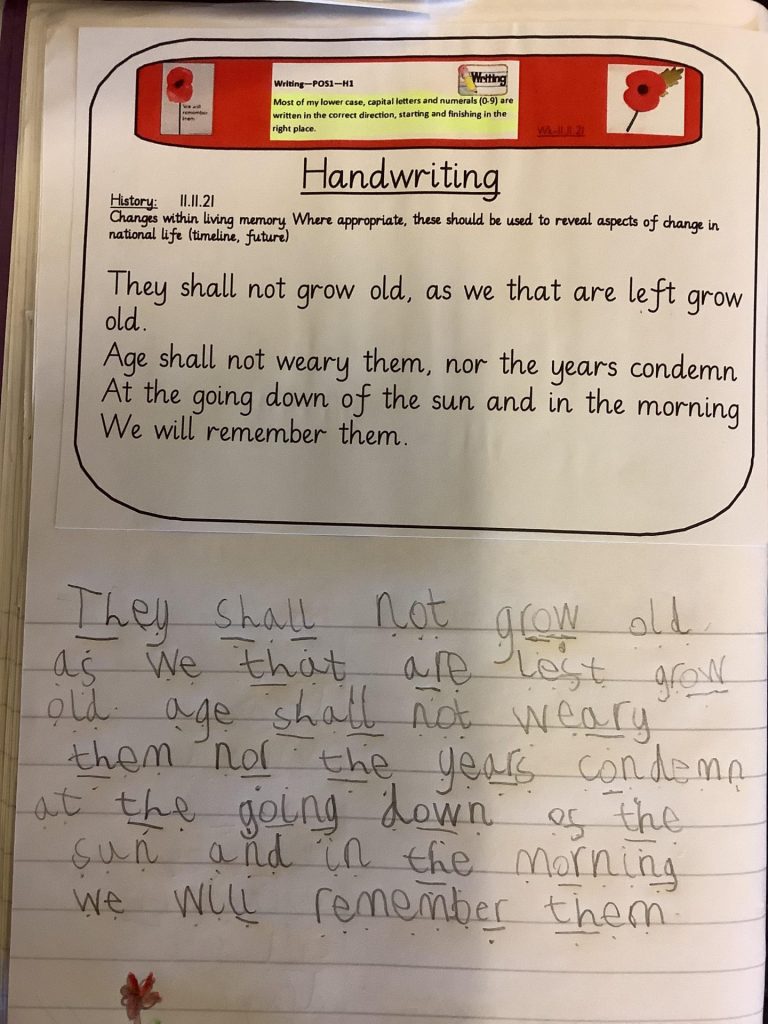 We will
remember
them
Writing—POS1—H1
Writing
Most of my lower case, capital letters and numerals (0-9) are
written in the correct direction, starting and finishing in the
right place.
Wk-11.11.21
Handwriting
History: 11.11.21
Changes within living memory. Where appropriate, these should be used to reveal aspects of change in
national life (timeline, future)
They shall not grow old, as we that are left grow
old.
Age shall not weary them, nor the years condemn
At the going down of the sun and in the morning
We will remember them.
They shall not grow old.
as we that are lest grow
old. age shall not weary
them nor the years condemn
at the going down os the
sun and in the morning
we will remember them.